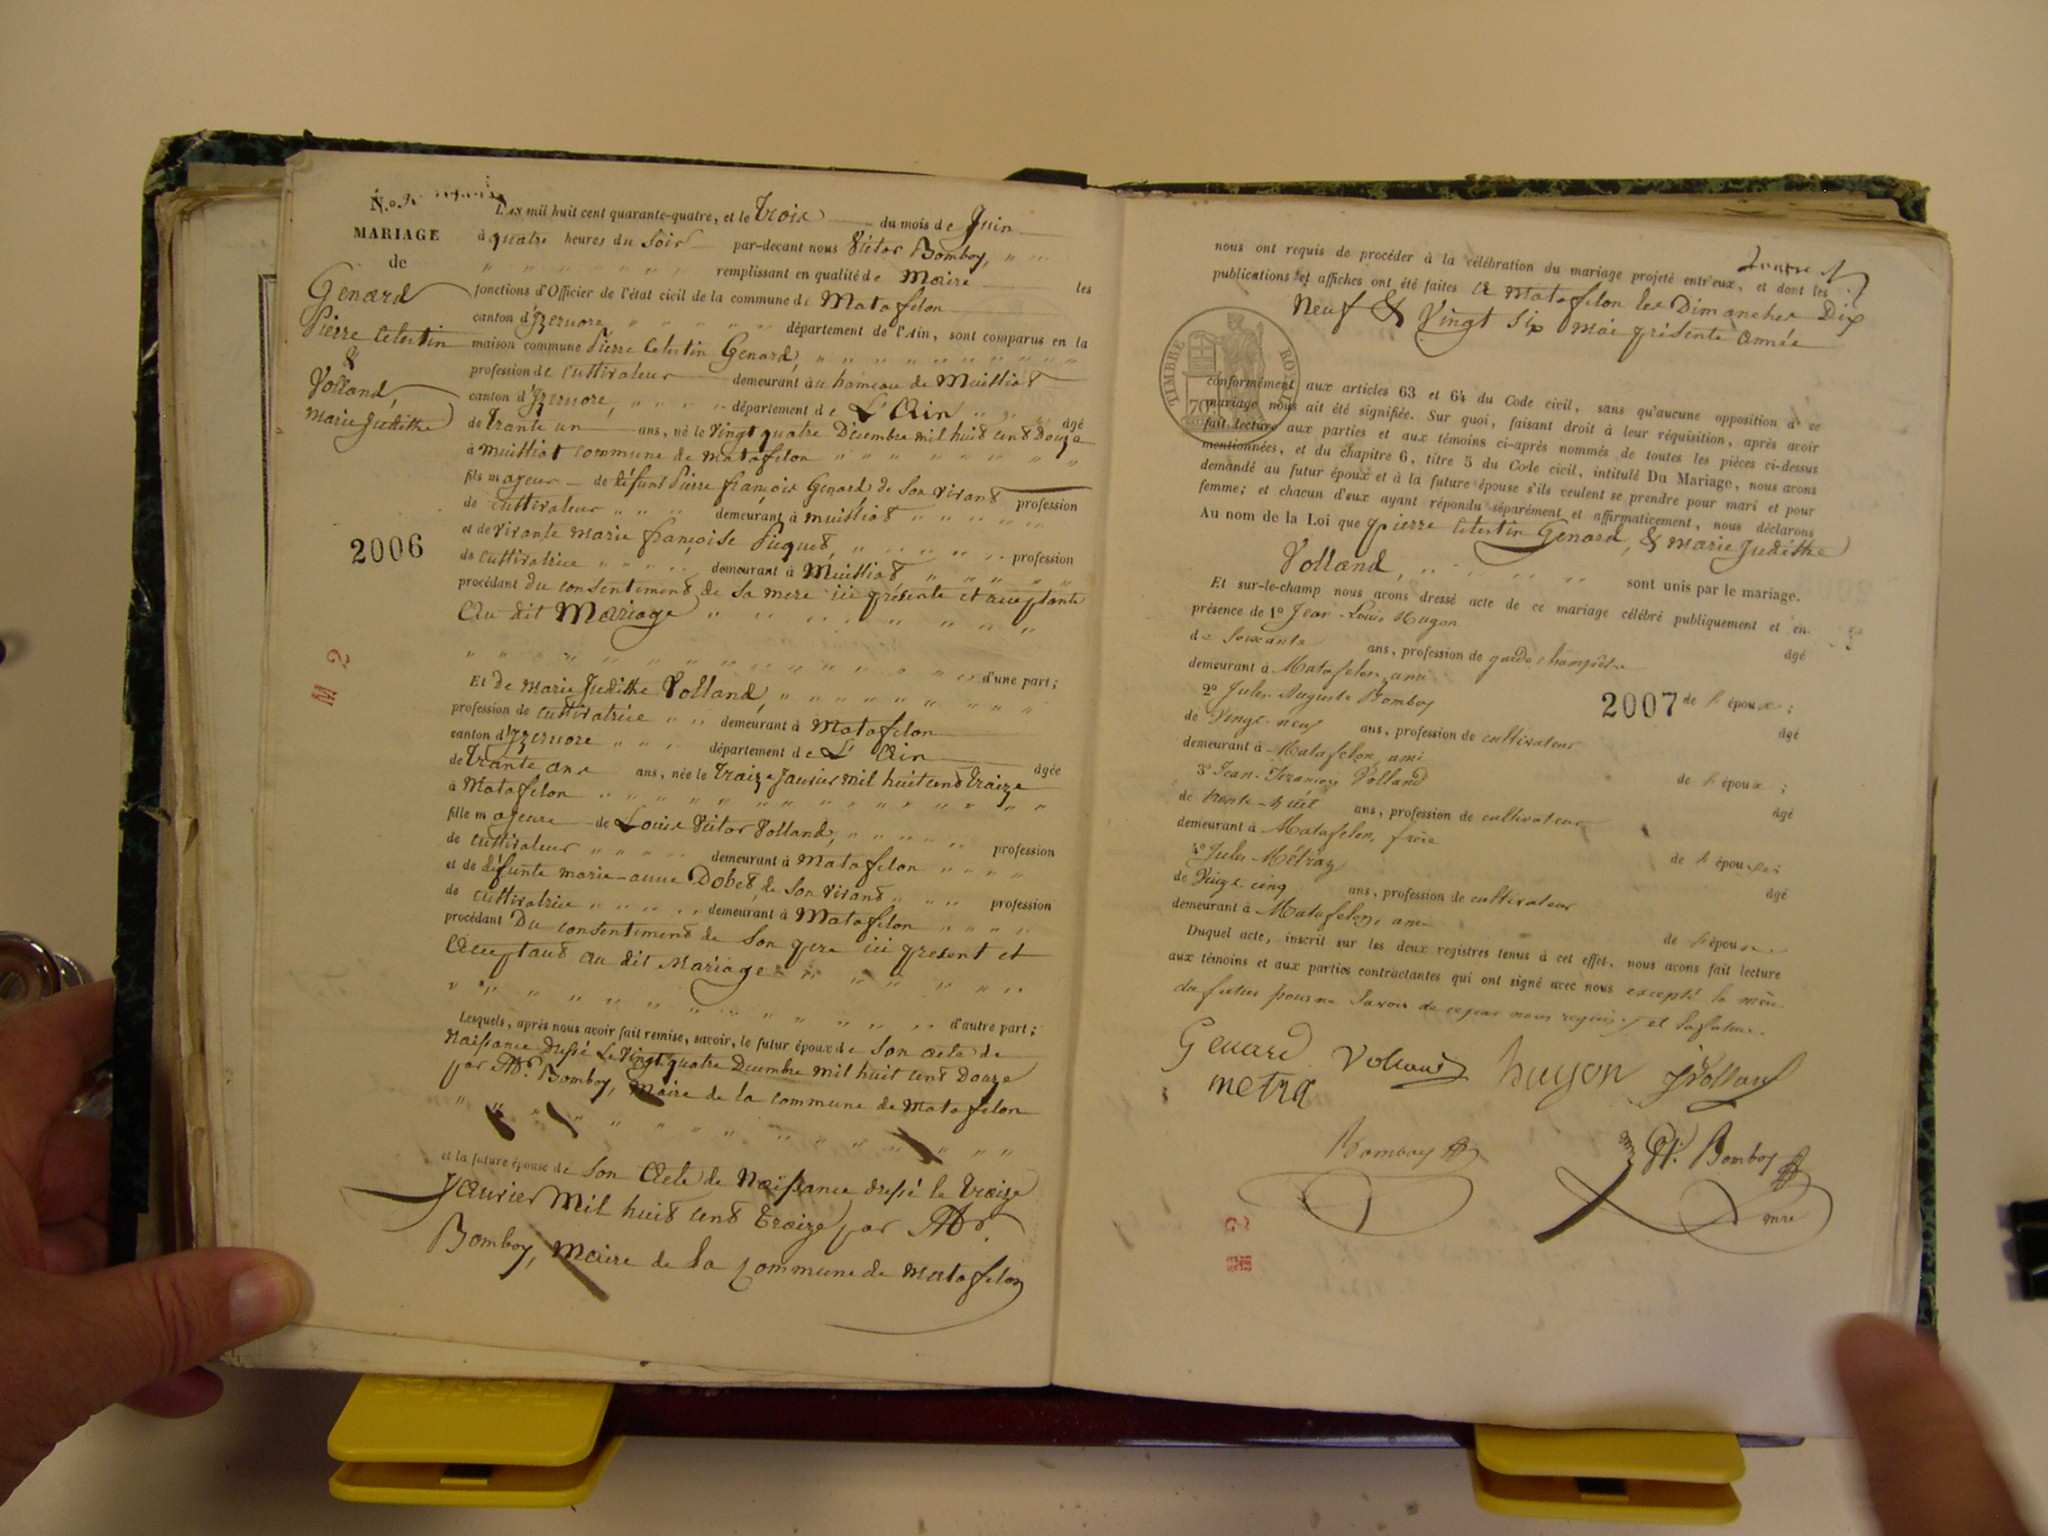 N.o
MARIAGE
de
Genard
Pierre Celestin
&
Volland,
Marie Judithe
2006
M 2
L'AN mil huit cent quarante-quatre, et le trois du mois de Juin
à quatre heures du soir par-devant nous Victor Bomboy,
remplissant en qualité de Maire les
fonctions d'Officier de l'état civil de la commune de Matafelon
canton d'Izernore, département de l'Ain, sont comparus en la
maison commune Pierre Celestin Genard,
profession de cultivateur demeurant au hameau de
canton d'Izernore, département de L'Ain âgé
de trante un ans, né le vingt quatre Décembre mil huit cent douze
à commune de Matafelon
fils majeur de défunt Pierre françois Genard de son vivant profession
de cultivateur demeurant à
et de vivante marie françoise Piquet, profession
de cultivatrice demeurant à
procédant du consentement de sa mere ici présente et acceptante
Au dit Mariage
d'une part;
Et de Marie Judithe Volland,
profession de cultivatrice demeurant à Matafelon
canton d'Izernore département de L'Ain
de trante ans ans, née le traize Janvier mil huit cent traize âgée
à Matafelon
fille majeure de Louis Victor Volland, profession
de cultivateur demeurant à Matafelon
et de défunte marie-anne Dobet, de son vivant profession
de cultivatrice demeurant à Matafelon
procédant Du consentement de son pere ici present et
Acceptant au dit Mariage
d'autre part;
Lesquels, après nous avoir fait remise, savoir, le futur époux de son acte de
Naissance dressé Le vingt quatre Décembre mil huit cent Douze
par Mr. Bomboy, Maire de la commune de Matafelon
et la future épouse de son Acte de Naissance dressé le traize
Janvier Mil huit cent traize par Mr.
Bomboy, Maire de la Commune de Matafelon
nous ont requis de procéder à la célébration du mariage projeté entr'eux, et dont les
publications et affiches ont été faites a Matafelon les Dimanches Dix
Neuf & Vingt six Mai présente année
TIMBRE ROYAL
70c
conformément aux articles 63 et 64 du Code civil, sans qu'aucune opposition à ce
mariage nous ait été signifiée. Sur quoi, faisant droit à leur réquisition, après avoir
fait lecture aux parties et aux témoins ci-après nommés de toutes les pièces ci-dessus
mentionnées, et du chapitre 6, titre 5 du Code civil, intitulé Du Mariage, nous avons
demandé au futur époux et à la future épouse s'ils veulent se prendre pour mari et pour
femme; et chacun d'eux ayant répondu séparément et affirmativement, nous déclarons
Au nom de la Loi que pierre Celestin Genard, & Marie Judithe
Volland, sont unis par le mariage.
Et sur-le-champ nous avons dressé acte de ce mariage célébré publiquement et en
présence de 1º Jean-Louis Hugon âgé
de Soixante ans, profession de garde champêtre
demeurant à Matafelon, ami de l'époux;
2º Jules-Auguste Bomboy âgé
de Vingt-neuf ans, profession de cultivateur
demeurant à Matafelon, ami de l'époux;
3º Jean-François Volland âgé
de trente-huit ans, profession de cultivateur
demeurant à Matafelon, frère de l'épouse;
4º Jules Métraz âgé
de Vingt-cinq ans, profession de cultivateur
demeurant à Matafelon, ami de l'épouse
2007
Duquel acte, inscrit sur les deux registres tenus à cet effet, nous avons fait lecture
aux témoins et aux parties contractantes qui ont signé avec nous excepté la mère
du futur pour ne savoir de ce par nous requis, et la future.
Genard Volland hugon JVolland
metra
Bomboy Vr. Bomboy
mre